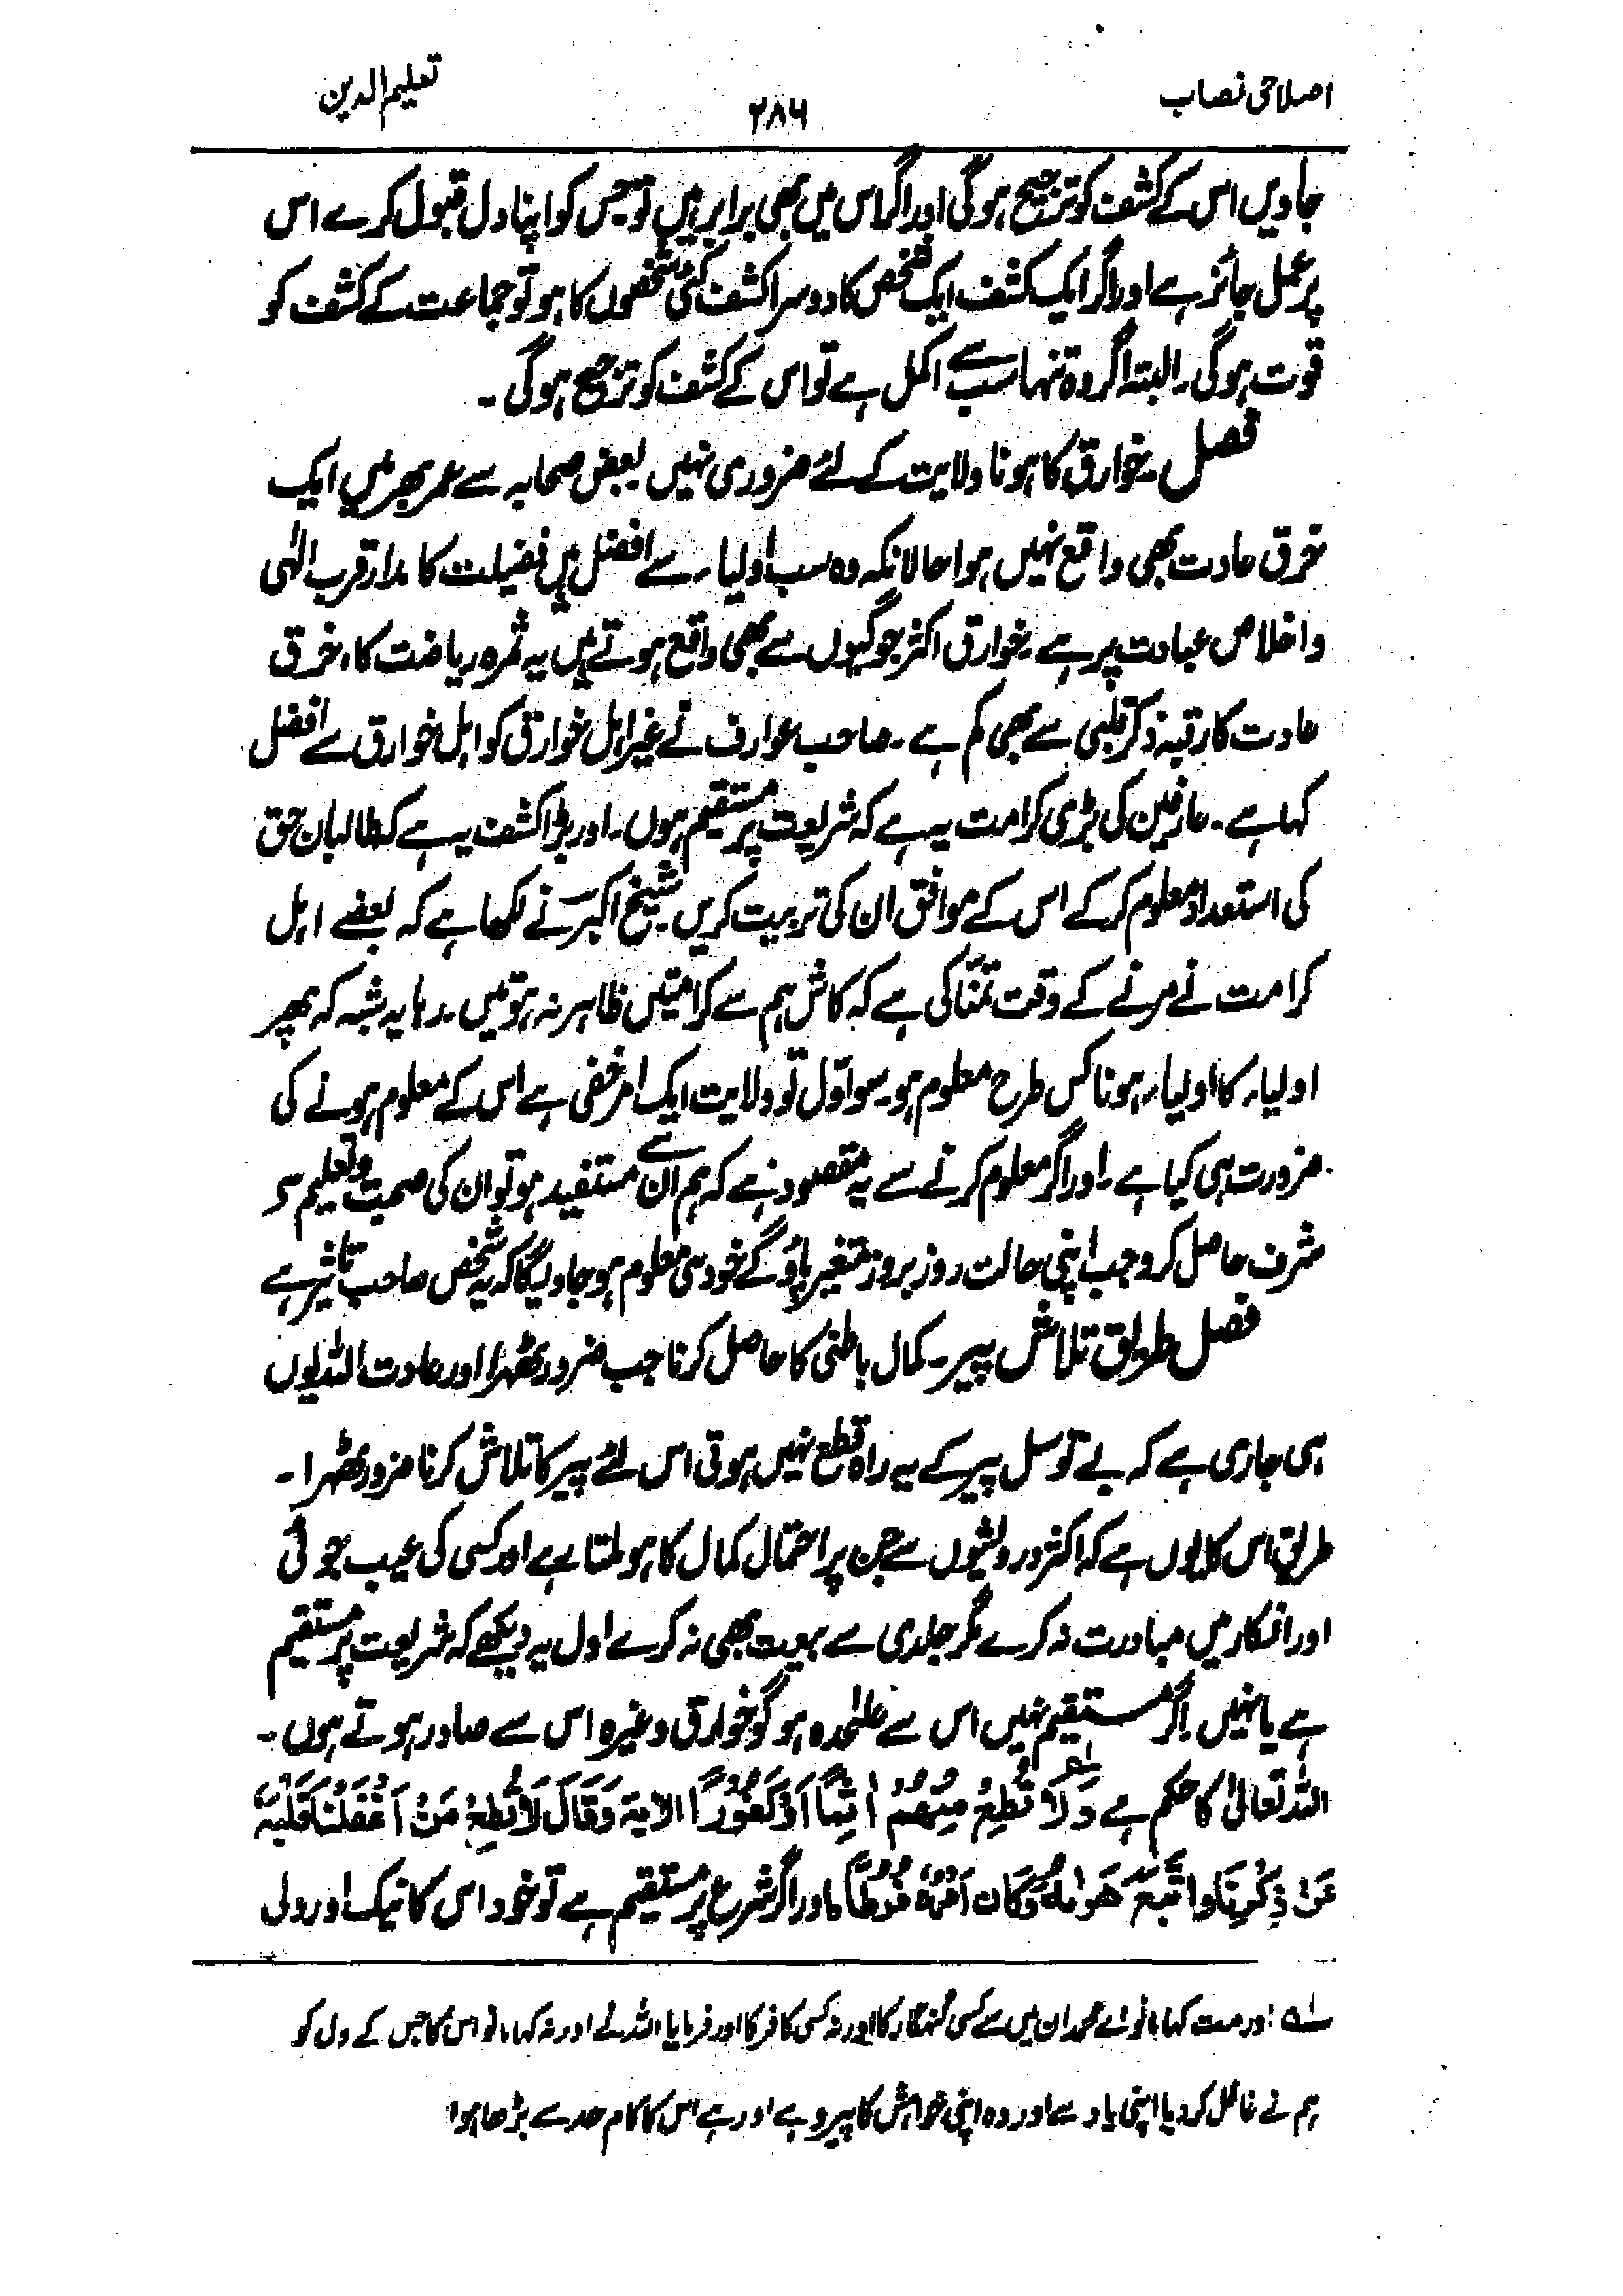 اصلاحی نصاب
۲۸۶
تعلیم الدین
جاویں اس کے کشف کو ترجیح ہوگی اور اگر اس میں بھی برابر ہیں تو جس کو اپنا دل قبول کرے اس
پر عمل جائز ہے اور اگر ایک کشف ایک شخص کا دوسرا کشف کئی شخصوں کا ہو تو جماعت کے کشف کو
قوت ہوگی۔ البتہ اگر وہ تنہا سب سے اکمل ہے تو اس کے کشف کو ترجیح ہوگی۔
فصل۔ خوارق کا ہونا ولایت کے لئے ضروری نہیں بعض صحابہ سے عمر بھر میں ایک
خرق عادت بھی واقع نہیں ہوا حالانکہ وہ سب اولیاء سے افضل ہیں فضیلت کا مدار قرب الٰہی
و اخلاص عبادت پر ہے۔ خوارق اکثر جوگیوں سے بھی واقع ہوتے ہیں یہ ثمرہ ریاضت کا، خرق
عادت کا رتبہ ذکر قلبی سے بھی کم ہے۔ صاحب عوارف نے غیر اہل خوارق کو اہل خوارق سے افضل
کہا ہے۔ عارفین کی بڑی کرامت یہ ہے کہ شریعت پر مستقیم ہوں۔ اور بڑا کشف یہ ہے کہ طالبان حق
کی استعداد معلوم کرکے اس کے موافق ان کی تربیت کریں۔ شیخ اکبرؒ نے لکھا ہے کہ بعضے اہل
کرامت نے مرنے کے وقت تمنّا کی ہے کہ کاش ہم سے کرامتیں ظاہر نہ ہوتیں۔ رہا یہ شبہ کہ پھر
اولیاء کا اولیاء ہونا کس طرح معلوم ہو۔ سو اوّل تو ولایت ایک امر خفی ہے اس کے معلوم ہونے کی
ضرورت ہی کیا ہے۔ اور اگر معلوم کرنے سے یہ مقصود ہے کہ ہم ان سے مستفید ہو تو ان کی صحبت و تعلیم سے
شرف حاصل کرو جب اپنی حالت روز بروز متغیر پاؤ گے خود ہی معلوم ہو جاویگا کہ یہ شخص صاحب تاثیر ہے
فصل طریق تلاش پیر۔ کمال باطنی کا حاصل کرنا جب ضرور ٹھہرا اور عادت اللہ یوں
ہی جاری ہے کہ بے توسل پیر کے یہ راہ قطع نہیں ہوتی اس لئے پیر کا تلاش کرنا ضرور ٹھہرا۔
طریق اس کا یوں ہے کہ اکثر درویشوں سے جن پر احتمال کمال کا ہو ملتا رہے اور کسی کی عیب جوئی
اور انکار میں مبادرت نہ کرے مگر جلدی سے بیعت بھی نہ کرے اول یہ دیکھے کہ شریعت پر مستقیم
ہے یا نہیں۔ اگر مستقیم نہیں اس سے علٰحدہ ہو گو خوارق وغیرہ اس سے صادر ہوتے ہوں۔
اللہ تعالیٰ کا حکم ہے وَلَا تُطِعْ مِنْهُمْ اٰثِمًا اَوْ كَفُوْرًا الایة وَقَالَ لَا تُطِعْ مَنْ اَغْفَلْنَا قَلْبَهٗ
عَنْ ذِكْرِنَا وَاتَّبَعَ هَوٰىهُ وَكَانَ اَمْرُهٗ فُرُطًا اور اگر شرع پر مستقیم ہے تو خود اس کا نیک اور ولی
۱؎ اور مت کہا مانو اے محمد ان میں سے کسی گنہگار کا اور نہ کسی کافر کا اور فرمایا اللہ نے اور نہ کہا مانو اس کا جس کے دل کو
ہم نے غافل کر دیا اپنی یاد سے اور وہ اپنی خواہش کا پیرو ہے اور ہے اس کا کام حد سے بڑھا ہوا